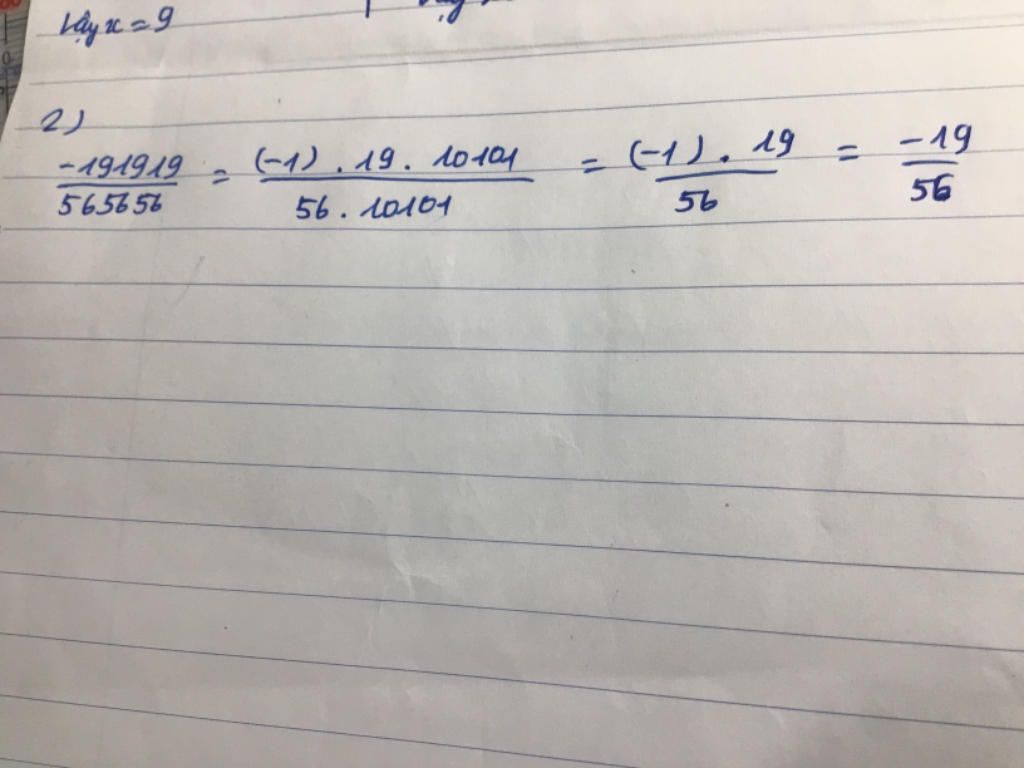 Vậy x = 9
2)
-191919/565656 = (-1) . 19 . 10101/56 . 10101 = (-1) . 19/56 = -19/56